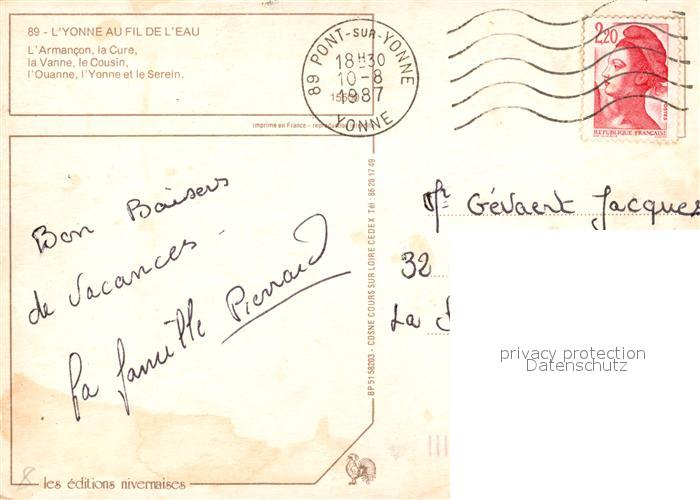 89 - L'YONNE AU FIL DE L'EAU
L'Armançon, la Cure,
la Vanne, le Cousin,
l'Ouanne, l'Yonne et le Serein.
89 PONT-SUR-YONNE
18H30
10-8
1987
YONNE
2,20
POSTES
REPUBLIQUE FRANÇAISE
imprimé en France - reproduction
Bon Baisers
de Vacances -
La famille Pierrard
BP 51 58203 - COSNE COURS SUR LOIRE CEDEX Tél : 86 28 17 49
Mr Gévaert Jacques
32
La
privacy protection
Datenschutz
8
les éditions nivernaises